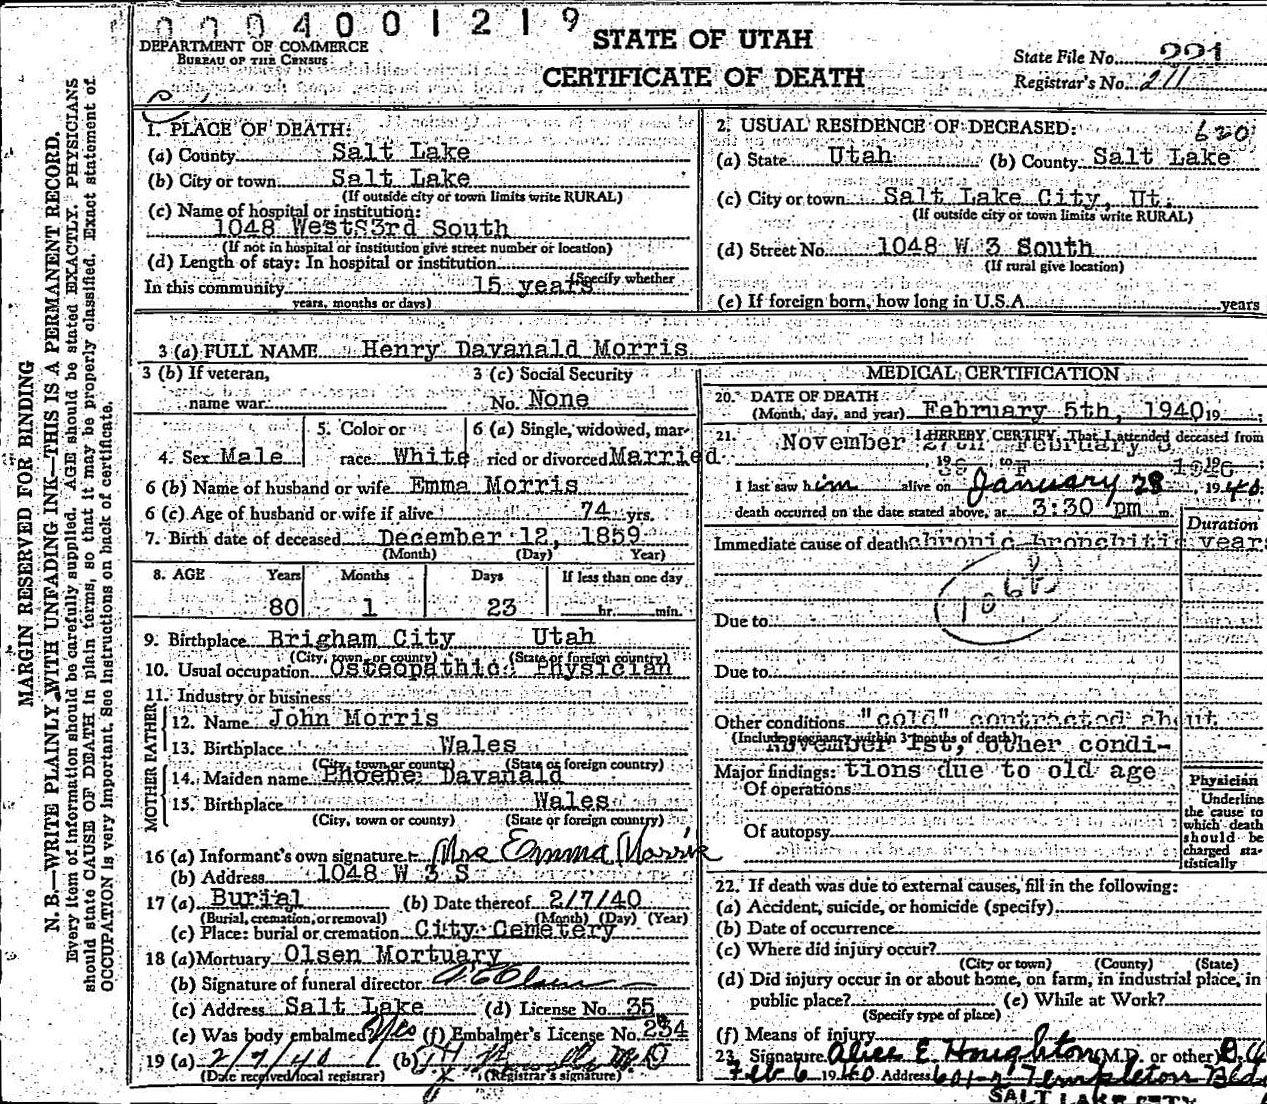 0004001219
DEPARTMENT OF COMMERCE
BUREAU OF THE CENSUS
STATE OF UTAH
CERTIFICATE OF DEATH
State File No. 221
Registrar's No. 211
MARGIN RESERVED FOR BINDING
N. B.—WRITE PLAINLY WITH UNFADING INK—THIS IS A PERMANENT RECORD.
Every item of information should be carefully supplied. AGE should be stated EXACTLY. PHYSICIANS
should state CAUSE OF DEATH in plain terms, so that it may be properly classified. Exact statement of
OCCUPATION is very important. See instructions on back of certificate.
1. PLACE OF DEATH:
(a) County Salt Lake
(b) City or town Salt Lake
(If outside city or town limits write RURAL)
(c) Name of hospital or institution:
1048 West 3rd South
(If not in hospital or institution give street number or location)
(d) Length of stay: In hospital or institution
(Specify whether
In this community 15 years
years, months or days)
2. USUAL RESIDENCE OF DECEASED: 620
(a) State Utah (b) County Salt Lake
(c) City or town Salt Lake City, Ut.
(If outside city or town limits write RURAL)
(d) Street No. 1048 W 3 South
(If rural give location)
(e) If foreign born, how long in U.S.A. years
3 (a) FULL NAME Henry Davanald Morris
3 (b) If veteran,
name war
3 (c) Social Security
No. None
4. Sex Male
5. Color or
race White
6 (a) Single, widowed, mar-
ried or divorced Married
6 (b) Name of husband or wife Emma Morris
6 (c) Age of husband or wife if alive 74 yrs.
7. Birth date of deceased December 12, 1859
(Month) (Day) Year)
8. AGE Years Months Days If less than one day
80 1 23 hr. min.
9. Birthplace Brigham City Utah
(City, town, or county) (State or foreign country)
10. Usual occupation Osteopathic Physician
11. Industry or business
FATHER
12. Name John Morris
13. Birthplace Wales
(City, town or county) (State or foreign country)
MOTHER
14. Maiden name Phoebe Davanald
15. Birthplace Wales
(City, town or county) (State or foreign country)
16 (a) Informant's own signature Mrs Emma Morris
(b) Address 1048 W 3 S
17 (a) Burial (b) Date thereof 2/7/40
(Burial, cremation, or removal) (Month) (Day) (Year)
(c) Place: burial or cremation City Cemetery
18 (a) Mortuary Olsen Mortuary
(b) Signature of funeral director
(c) Address Salt Lake (d) License No. 35
(e) Was body embalmed Yes (f) Embalmer's License No. 234
19 (a) 2/7/40 (b)
(Date received local registrar) (Registrar's signature)
MEDICAL CERTIFICATION
20. DATE OF DEATH
(Month, day, and year) February 5th, 1940 19
21. I HEREBY CERTIFY, That I attended deceased from
November February
I last saw him alive on January 28, 1940
death occurred on the date stated above, at 3:30 pm m.
Duration
Immediate cause of death chronic bronchitis years
106b
Due to
Due to
Other conditions "cold" contracted about
(Include pregnancy within 3 months of death)
November 1st, other condi-
Major findings: tions due to old age
Of operations
Of autopsy
Physician
Underline
the cause to
which death
should be
charged sta-
tistically
22. If death was due to external causes, fill in the following:
(a) Accident, suicide, or homicide (specify)
(b) Date of occurrence
(c) Where did injury occur?
(City or town) (County) (State)
(d) Did injury occur in or about home, on farm, in industrial place, in
public place? (e) While at Work?
(Specify type of place)
(f) Means of injury
23. Signature Alice E. Houghton (M.D. or other) D.O.
Feb 6 1940 Address 601-2 Templeton Bldg
SALT LAKE CITY